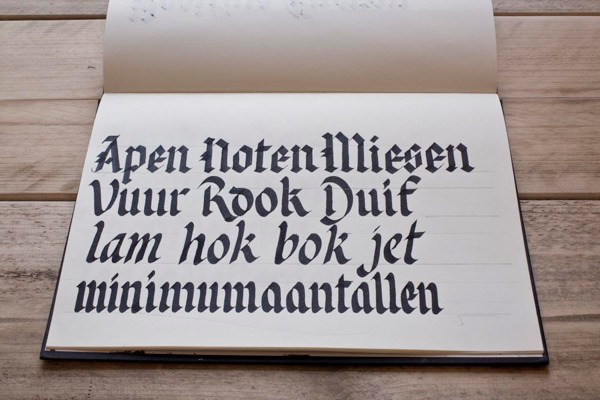 Apen Noten Miesen
Vuur Rook Duif
lam hok bok jet
minimumaantallen